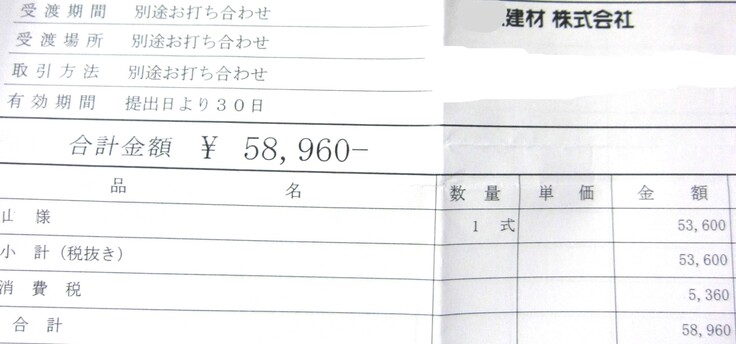 受渡期間 別途お打ち合わせ
建材 株式会社
受渡場所 別途お打ち合わせ
取引方法 別途お打ち合わせ
有効期間 提出日より30日
合計金額 ¥ 58,960-
品 名 数 量 単 価 金 額
山 様 1 式 53,600
小 計 (税抜き) 53,600
消 費 税 5,360
合 計 58,960